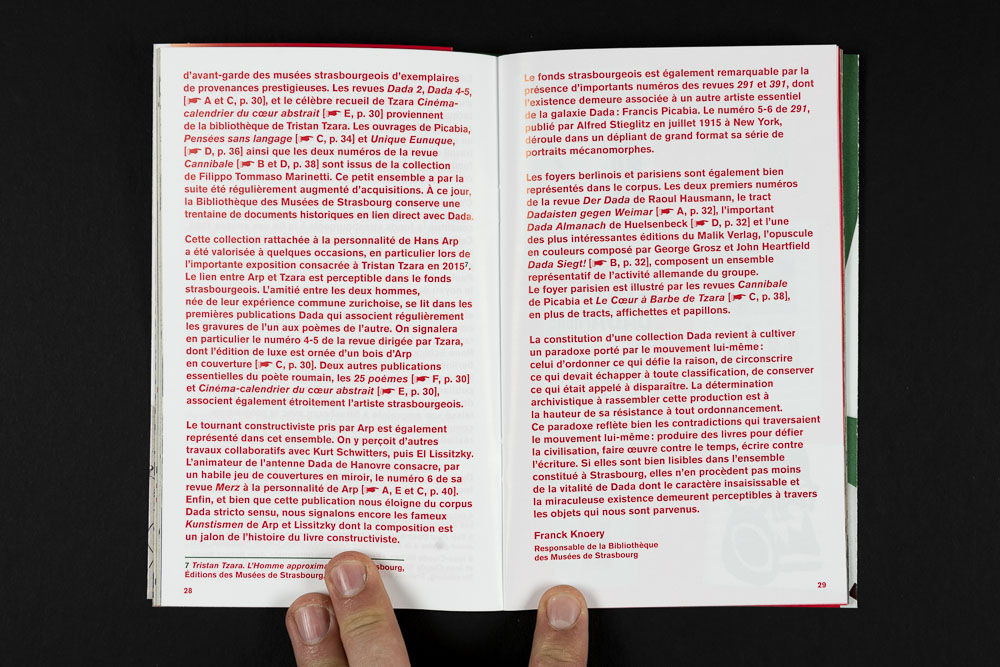 d'avant-garde des musées strasbourgeois d'exemplaires
de provenances prestigieuses. Les revues Dada 2, Dada 4-5,
[☛ A et C, p. 30], et le célèbre recueil de Tzara Cinéma-
calendrier du cœur abstrait [☛ E, p. 30] proviennent
de la bibliothèque de Tristan Tzara. Les ouvrages de Picabia,
Pensées sans langage [☛ C, p. 34] et Unique Eunuque,
[☛ D, p. 36] ainsi que les deux numéros de la revue
Cannibale [☛ B et D, p. 38] sont issus de la collection
de Filippo Tommaso Marinetti. Ce petit ensemble a par la
suite été régulièrement augmenté d'acquisitions. À ce jour,
la Bibliothèque des Musées de Strasbourg conserve une
trentaine de documents historiques en lien direct avec Dada.
Cette collection rattachée à la personnalité de Hans Arp
a été valorisée à quelques occasions, en particulier lors de
l'importante exposition consacrée à Tristan Tzara en 2015⁷.
Le lien entre Arp et Tzara est perceptible dans le fonds
strasbourgeois. L'amitié entre les deux hommes,
née de leur expérience commune zurichoise, se lit dans les
premières publications Dada qui associent régulièrement
les gravures de l'un aux poèmes de l'autre. On signalera
en particulier le numéro 4-5 de la revue dirigée par Tzara,
dont l'édition de luxe est ornée d'un bois d'Arp
en couverture [☛ C, p. 30]. Deux autres publications
essentielles du poète roumain, les 25 poèmes [☛ F, p. 30]
et Cinéma-calendrier du cœur abstrait [☛ E, p. 30],
associent également étroitement l'artiste strasbourgeois.
Le tournant constructiviste pris par Arp est également
représenté dans cet ensemble. On y perçoit d'autres
travaux collaboratifs avec Kurt Schwitters, puis El Lissitzky.
L'animateur de l'antenne Dada de Hanovre consacre, par
un habile jeu de couvertures en miroir, le numéro 6 de sa
revue Merz à la personnalité de Arp [☛ A, E et C, p. 40].
Enfin, et bien que cette publication nous éloigne du corpus
Dada stricto sensu, nous signalons encore les fameux
Kunstismen de Arp et Lissitzky dont la composition est
un jalon de l'histoire du livre constructiviste.
7 Tristan Tzara. L'Homme approxima
Éditions des Musées de Strasbourg,
28
Le fonds strasbourgeois est également remarquable par la
présence d'importants numéros des revues 291 et 391, dont
l'existence demeure associée à un autre artiste essentiel
de la galaxie Dada : Francis Picabia. Le numéro 5-6 de 291,
publié par Alfred Stieglitz en juillet 1915 à New York,
déroule dans un dépliant de grand format sa série de
portraits mécanomorphes.
Les foyers berlinois et parisiens sont également bien
représentés dans le corpus. Les deux premiers numéros
de la revue Der Dada de Raoul Hausmann, le tract
Dadaisten gegen Weimar [☛ A, p. 32], l'important
Dada Almanach de Huelsenbeck [☛ D, p. 32] et l'une
des plus intéressantes éditions du Malik Verlag, l'opuscule
en couleurs composé par George Grosz et John Heartfield
Dada Siegt! [☛ B, p. 32], composent un ensemble
représentatif de l'activité allemande du groupe.
Le foyer parisien est illustré par les revues Cannibale
de Picabia et Le Cœur à Barbe de Tzara [☛ C, p. 38],
en plus de tracts, affichettes et papillons.
La constitution d'une collection Dada revient à cultiver
un paradoxe porté par le mouvement lui-même :
celui d'ordonner ce qui défie la raison, de circonscrire
ce qui devait échapper à toute classification, de conserver
ce qui était appelé à disparaître. La détermination
archivistique à rassembler cette production est à
la hauteur de sa résistance à tout ordonnancement.
Ce paradoxe reflète bien les contradictions qui traversaient
le mouvement lui-même : produire des livres pour défier
la civilisation, faire œuvre contre le temps, écrire contre
l'écriture. Si elles sont bien lisibles dans l'ensemble
constitué à Strasbourg, elles n'en procèdent pas moins
de la vitalité de Dada dont le caractère insaisissable et
la miraculeuse existence demeurent perceptibles à travers
les objets qui nous sont parvenus.
Franck Knoery
Responsable de la Bibliothèque
des Musées de Strasbourg
29